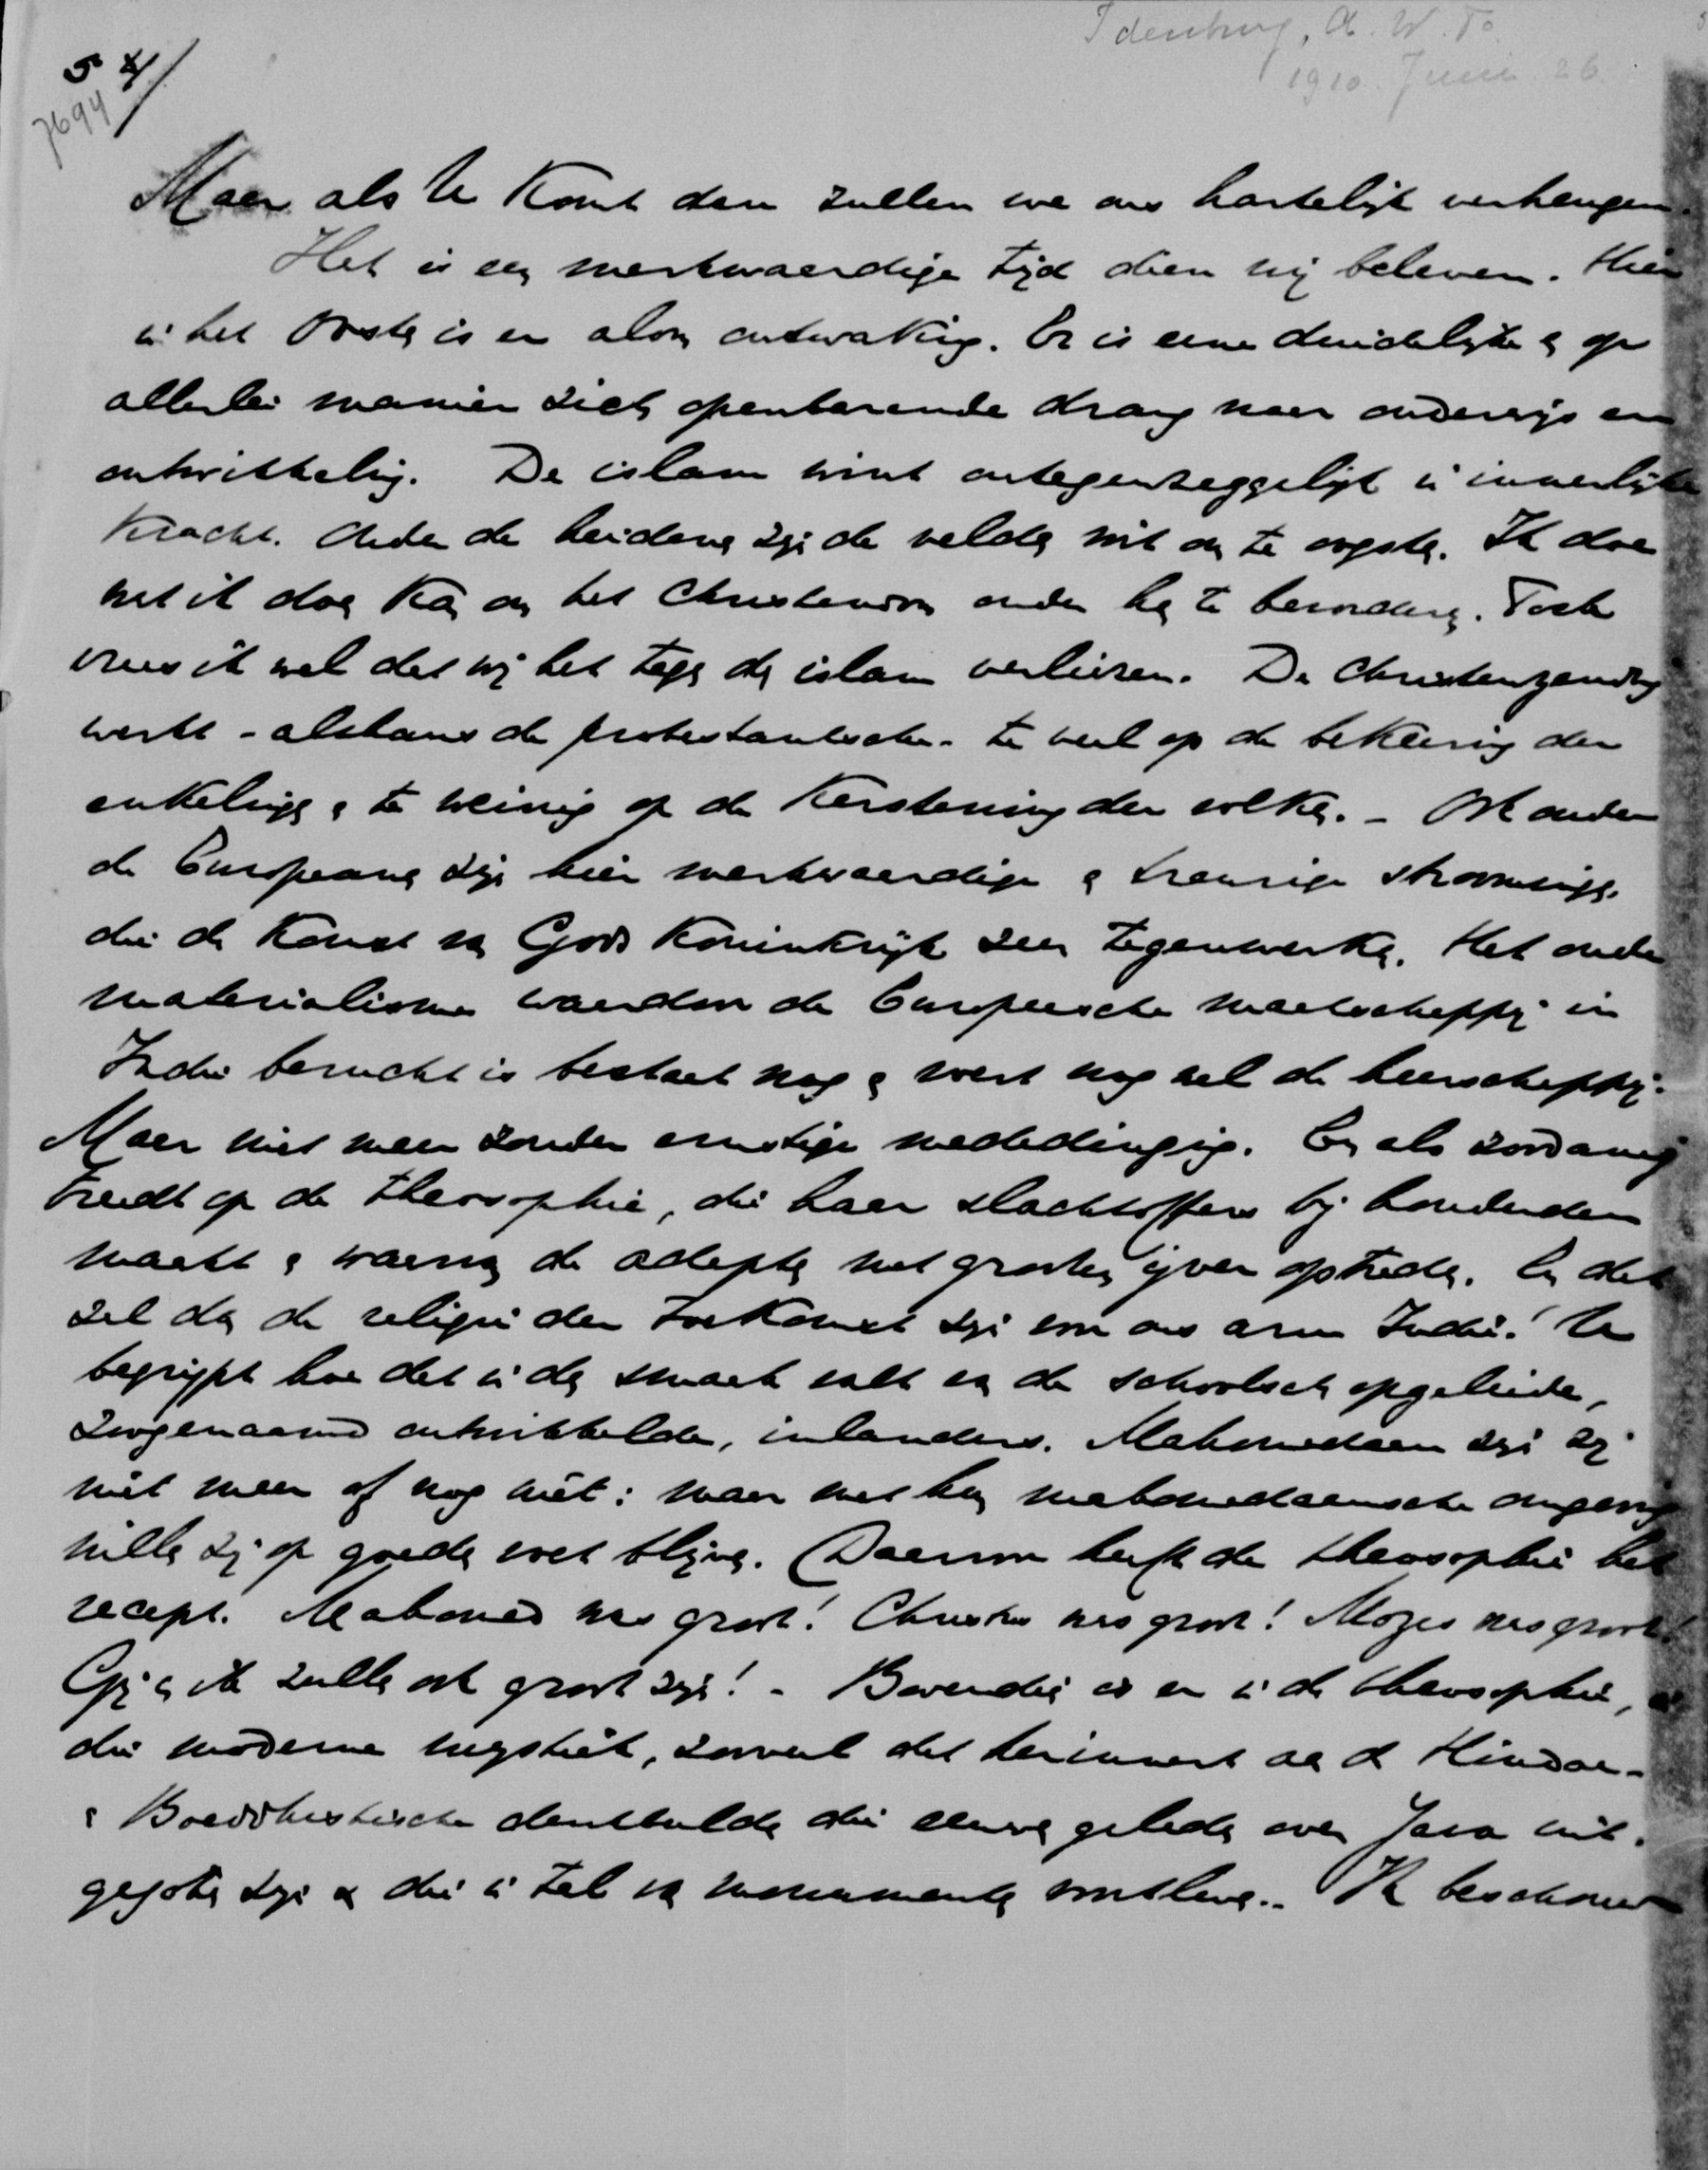 Idenburg, A. W. F.
1910. Juni 26.
5 4/
7694
Maar als U komt dan zullen we ons hartelijk verheugen.
Het is een merkwaardige tijd dien wij beleven. Hier
in het Oosten is er alom ontwaking. Er is eene duidelijke en op
allerlei manier zich openbarende drang naar onderwijs en
ontwikkeling. De islam wint ontegenzeggelijk in innerlijke
kracht. Onder de heidenen zijn de velden wit om te oogsten. Ik doe
wat ik doen kan om het Christendom onder hen te bevorderen. Toch
vrees ik wel dat wij het tegen den islam verliezen. De Christenzending
werkt - althans de protestantsche - te veel op de bekeering der
enkelingen en te weinig op de kerstening der volken. - Ook onder
de Europeanen zijn hier merkwaardige en treurige stroomingen
die de komst van Gods Koninkrijk zeer tegenwerken. Het oude
materialisme waardoor de Europeesche maatschappij in
Indië berucht is bestaat nog en voert nog wel de heerschappij.
Maar niet meer zonder ernstige mededinging. En als zoodanig
treedt op de theosophie, die haar slachtoffers bij honderden
maakt en waarvan de adepten met grooten ijver optreden. En dat
zal dan de religie der toekomst zijn voor ons arm Indië! U
begrijpt hoe dat in den smaak valt van de schoolsch opgeleide,
zoogenaamd ontwikkelde, inlanders. Mahomedaan zijn zij
niet meer of nog niet: maar met hun mahomedaansche omgeving
willen zij op goeden voet blijven. Daarvoor heeft de theosophie het
recept. Mahomed was groot! Christus was groot! Mozes was groot!
Gij en ik zullen ook groot zijn! - Bovendien is er in de theosophie, in
die moderne mystiek, zooveel dat herinnert aan de Hindoe-
en Boeddhistische denkbeelden die eeuwen geleden over Java uit-
gegoten zijn en die in tal van monumenten voortleven. - Ik beschouw